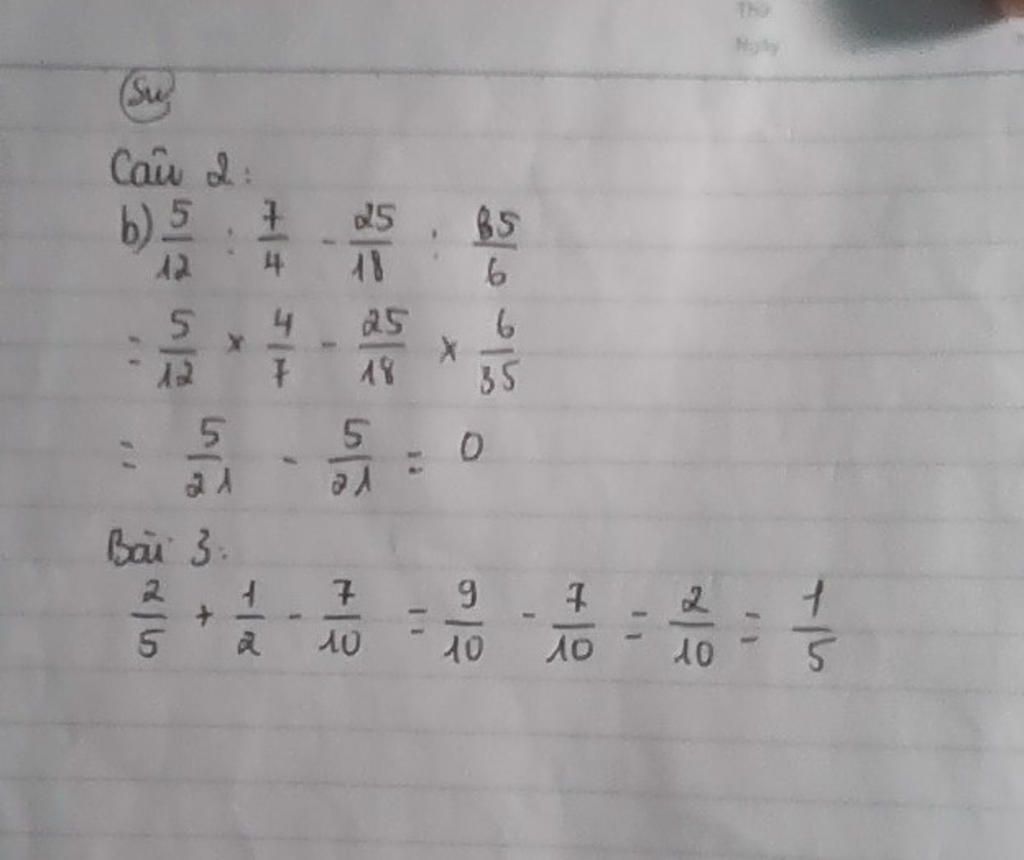 Thứ
Ngày
Câu 2:
b) 5/12 : 7/4 - 25/18 : 35/6
= 5/12 × 4/7 - 25/18 × 6/35
= 5/21 - 5/21 = 0
Bài 3:
2/5 + 1/2 - 7/10 = 9/10 - 7/10 = 2/10 = 1/5